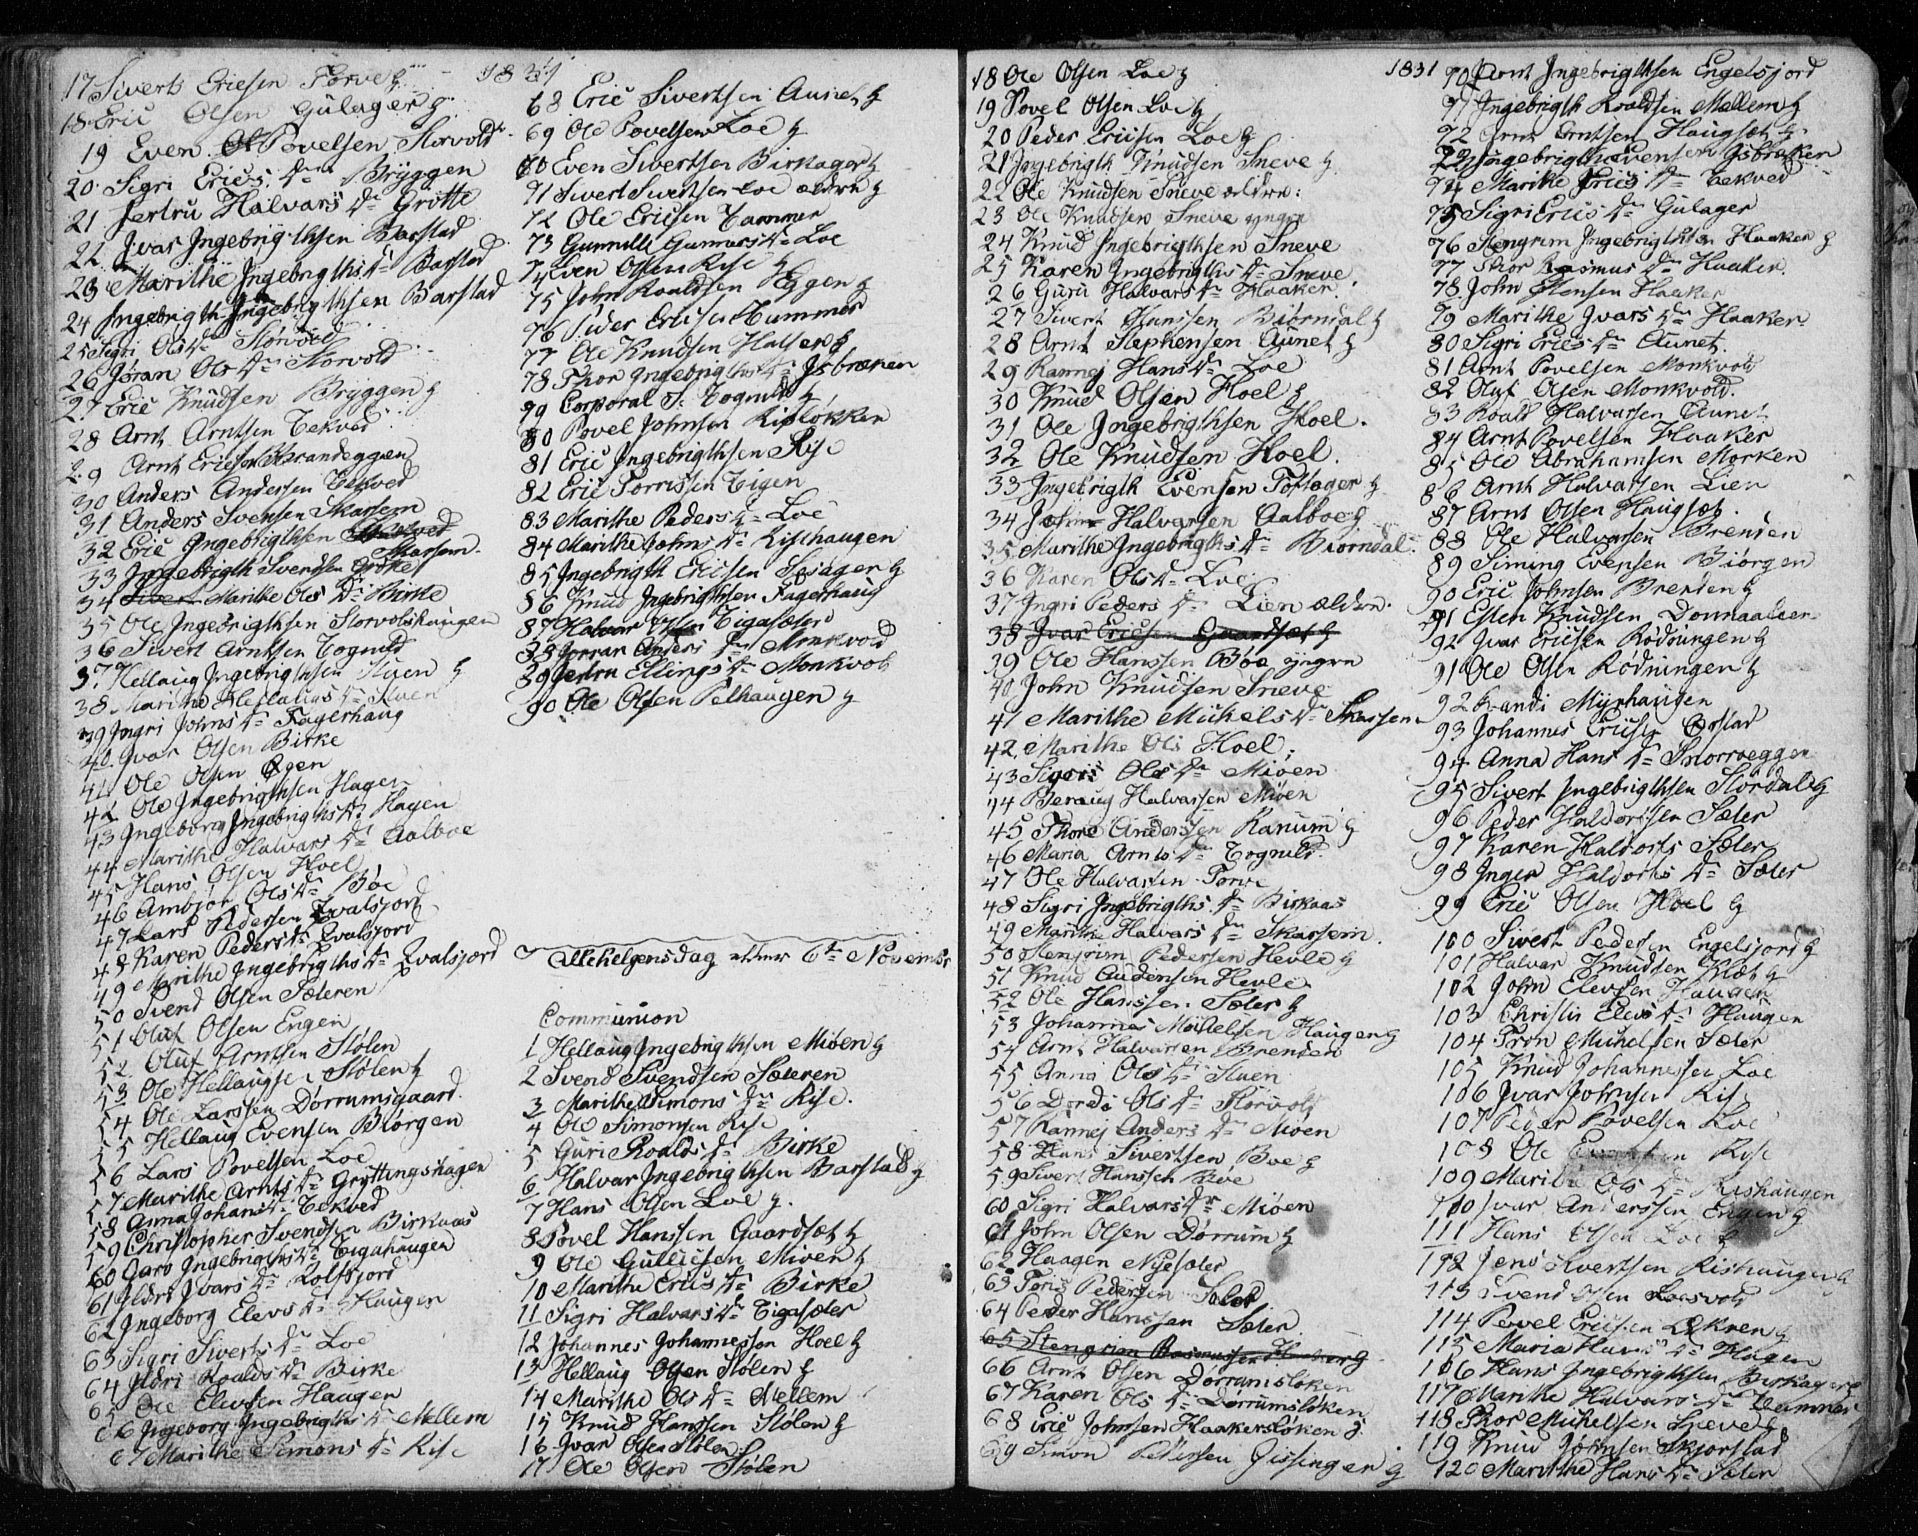 1831
17 Siverts Ericsen Torve &
18 Eric Olsen Gulager &
19 Even Povelsen Storvold
20 Sigri Erics Dr Bryggen
21 Jertru Halvars Dr Grötte
22 Jvar Jngebrigthsen Barstad
23 Marithe Jngebrigths Dr Barstad
24 Jngebrigth Jngebrigthsen Barstad
25 Sigri Ols Dr Storvold
26 Jøran Ols Dr Storvold
27 Eric Knudsen Bryggen &
28 Arnt Arntsen Tekved
29 Arnt Ericsen Brandeggen
30 Anders Andersen Tekved
31 Anders Svensen Skarsem
32 Eric Jngebrigthsen Skarsem
33 Jngebrigth Svendsen
34 Marithe Ols Dr Birke
35 Ole Jngebrigthsen Storvoldshaugen
36 Sivert Arntsen Tognild
37 Hellaug Jngebrigthsen Stuen &
38 Marithe Hellaugs Dr Stuen
39 Jngri Johns Dr Fagerhaug
40 Jvar Olsen Birke
41 Ole Olsen Øgen
42 Ole Jngebrigthsen Hagen
43 Jngeborg Jngebrigths Dr Hagen
44 Marithe Halvars Dr Aalboe
45 Hans Olsen Hoel
46 Ambjør Ols Dr Bøe
47 Lars Pedersen Evalsjord
48 Karen Peders Dr Evalsjord
49 Marithe Jngebrigths Dr Evalsjord
50 Svend Olsen Sæteren
51 Oluf Olsen Engen
52 Oluf Arntsen Stølen
53 Ole Hellaugse Stølen &
54 Ole Larssen Dørrumsgaard
55 Hellaug Evensen Biørgen
56 Lars Povelsen Loe
57 Marithe Arnts Dr Gryttingshagen
58 Anna Johans Dr Tekved
59 Christopher Svendsen Birkaas
60 Garo Jngebrigths Dr Tigahaugen
61 Jldri Jvars Dr Rolfsjord
62 Jngeborg Elevs Dr Haugen
63 Sigri Siverts Dr Loe
64 Jldri Roalds Dr Birke
65 Ole Elevsen Haugen
66 Jngeborg Jngebrigths Dr Mellem
67 Marithe Simons Dr Rise
68 Eric Sivertsen Aunet &
69 Ole Povelsen Loe &
70 Even Sivertsen Birkager &
71 Sivert Sivertsen Loe ældre &
72 Ole Ericsen Tammer
73 Gunnild Gunnars Dr Loe
74 Even Olsen Rise &
75 John Roaldsen Eggen &
76 Peder Ericsen Hummer
77 Ole Knudsen Halsen &
78 Thor Jngebrigths Dr Jsbreken
79 Corporal J. Tognild &
80 Povel Johnsen Risløkken
81 Eric Jngebrigthsen Rise
82 Eric Torrissen Tigen
83 Marithe Peders Dr Loe
84 Marithe Johns Dr Rishaugen
85 Jngebrigth Ericsen &
86 Knud Jngebrigthsen Fagerhaug
87 Halvor Olsen Tigasæter
88 Jorran Anders Dr Monkvold
89 Jertru Ellings Dr Monkvold
90 Ole Olsen Pelhaugen &
Allehelgensdag 6te November
Communion
1 Hellaug Jngebrigthsen Miøen &
2 Svend Svendsen Sæteren
3 Marithe Simons Dr Rise.
4 Ole Simonsen Rise
5 Guri Roalds Dr Birke
6 Halvar Jngebrigthsen Barstad &
7 Hans Olsen Loe &.
8 Povel Hanssen Gaardsæt &
9 Ole Gulliksen Miøen &
10 Marithe Erics Dr Birke
11 Sigri Halvars Dr Tigasæter
12 Johannes Johannessen Hoel &
13 Hellaug Olsen Stølen &
14 Marithe Ols Dr Mellem
15 Knud Hanssen Stølen &
16 Jvar Olsen Stølen
17 Ole Olsen Stølen
1831
18 Ole Olsen Loe &
19 Povel Olsen Loe &
20 Peder Ericsen Loe &
21 Jngebrigth Knudsen Sneve &
22 Ole Knudsen Sneve ældre:
23 Ole Knudsen Sneve yngre
24 Knud Jngebrigthsen Sneve
25 Karen Jngebrigths Dr Sneve
26 Guru Halvars Dr Haaker
27 Sivert Hanssen Biørndal &
28 Arnt Stephensen Aunet &
29 Rannej Hans Dr Loe
30 Knud Olsen Hoel &
31 Ole Jngebrigthsen Hoel.
32 Ole Knudsen Hoel.
33 Jngebrigth Evensen Toftager &
34 John Halvarsen Aalboe &
35 Marithe Jngebrigths Dr Biørndal
36 Karen Ols Dr Loe
37 Jngri Peders Dr Lien ældre.
38 Jvar Ericsen Gaardsæt &
39 Ole Hanssen Bøe yngre
40 John Knudsen Sneve
41 Marithe Michels Dr Skarsem
42 Marithe Ols Hoel.
43 Sigri Ols Dr Miøen
44 Beraug Halvarsen Miøen
45 Thore Anderssen Ranum &
46 Maria Arnts Dr Tognild.
47 Ole Halvarsen Torve
48 Sigri Jngebrigths Dr Birkaas
49 Marithe Halvars Dr Skarsem.
50 Stengrim Pedersen Hevle &
51 Knud Audensen Hevle
52 Ole Hanssen Sæter &
53 Johannes Michelsen Haugen &
54 Arnt Halvarsen Brenden
55 Anne Ols Dr Stuen
56 Dordi Ols Dr Storvold
57 Rannej Anders Dr Miøen
58 Hans Sivertsen Bøe &
59 Sivert Hanssen Bøe
60 Sigri Halvars Dr Miøen
61 John Olsen Dørrum &
62 Haagen Nysæter
63 Toris Pedersen Sæter
64 Peder Hanssen Sæter
65 Stengrim Rasmussen Haaker &
66 Arnt Olsen Dørrumsløken
67 Karen Ols Dr Dørrumsløken
68 Eric Johnsen Haakersløken &
69 Simon Pedersen Gissinger &
70 Arnt Jngebrigthsen Engelsjord
71 Jngebrigth Roaldsen Mellem &
72 Arnt Arntsen Haugsæt &
73 Jngebrigth Svensen Jsbreken
74 Marithe Erics Dr Tekved
75 Sigri Erics Dr Gulager
76 Stengrim Jngebrigthsen Haaker &
77 Thor Rasmus Dr Haaker.
78 John Stensen Haaker
79 Marithe Jvars Dr Haaker
80 Sigri Erics Dr Aunet.
81 Arnt Povelsen Monkvold
82 Oluf Olsen Monkvold.
83 Roald Halvarsen Aunet
84 Arnt Povelsen Haaker
85 Ole Abrahamsen Morken
86 Arnt Halvarsen Lien
87 Arnt Olsen Haugsæt.
88 Ole Halvarsen Brenden
89 Siming Evensen Biørgen
90 Eric Johnsen Brenden &
91 Esten Knudsen Donnaaleen
92 Jvar Ericsen Rødningen &
91 Ole Olsen Rødningen &
92 Randi Myrhaugen
93 Johannes Ericsen Ørstad
94 Anna Hans Dr Storrveggen
95 Sivert Jngebrigthsen Stordal &
96 Peder Haldorsen Sæter
97 Karen Haldors Sæter
98 Jnger Haldors Dr Sæter
99 Eric Olsen Hoel &
100 Sivert Pedersen Engelsjord &
101 Halvar Knudsen Klæt &
102 John Elevsen Haugen
103 Christie Elevs Dr Haugen
104 Tron Michelsen Sæter
105 Knud Johannessen Loe
106 Jvar Johnsen Rise
107 Peder Povelsen Loe
108 Ole Rise
109 Marithe Ols Dr Rishaugen
110 Jvar Anderssen Engen &
111 Hans Olsen Loe &
112 Jens Sivertsen Rishaugen &
113 Svend Olsen
114 Povel Ericsen Økren &
115 Maria Hans Dr Hagen
116 Hans Jngebrigthsen Birkager &
117 Marithe Halvars Dr Tammer
118 Thor Michelsen Sneve &
119 Knud Johnsen Skjorstad
120 Marithe Hans Dr Sæter